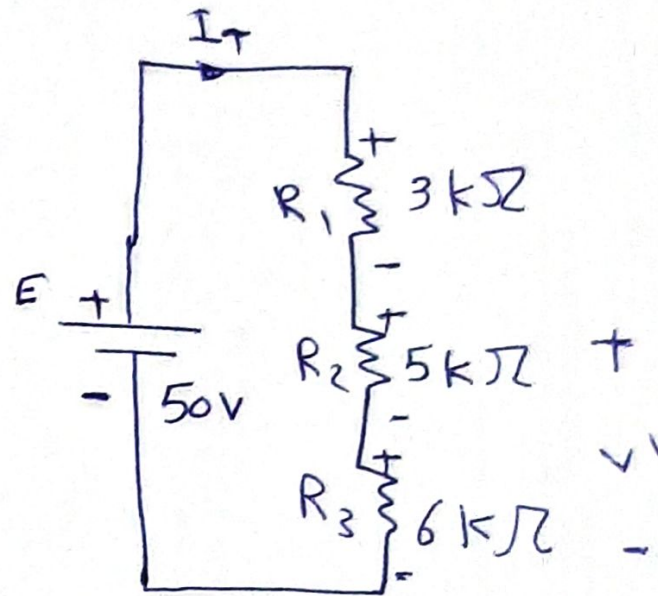 I_T
+
R_1 3 kΩ
-
E +
+
R_2 5 kΩ +
- 50V
-
+
V'
R_3 6 kΩ
-
-